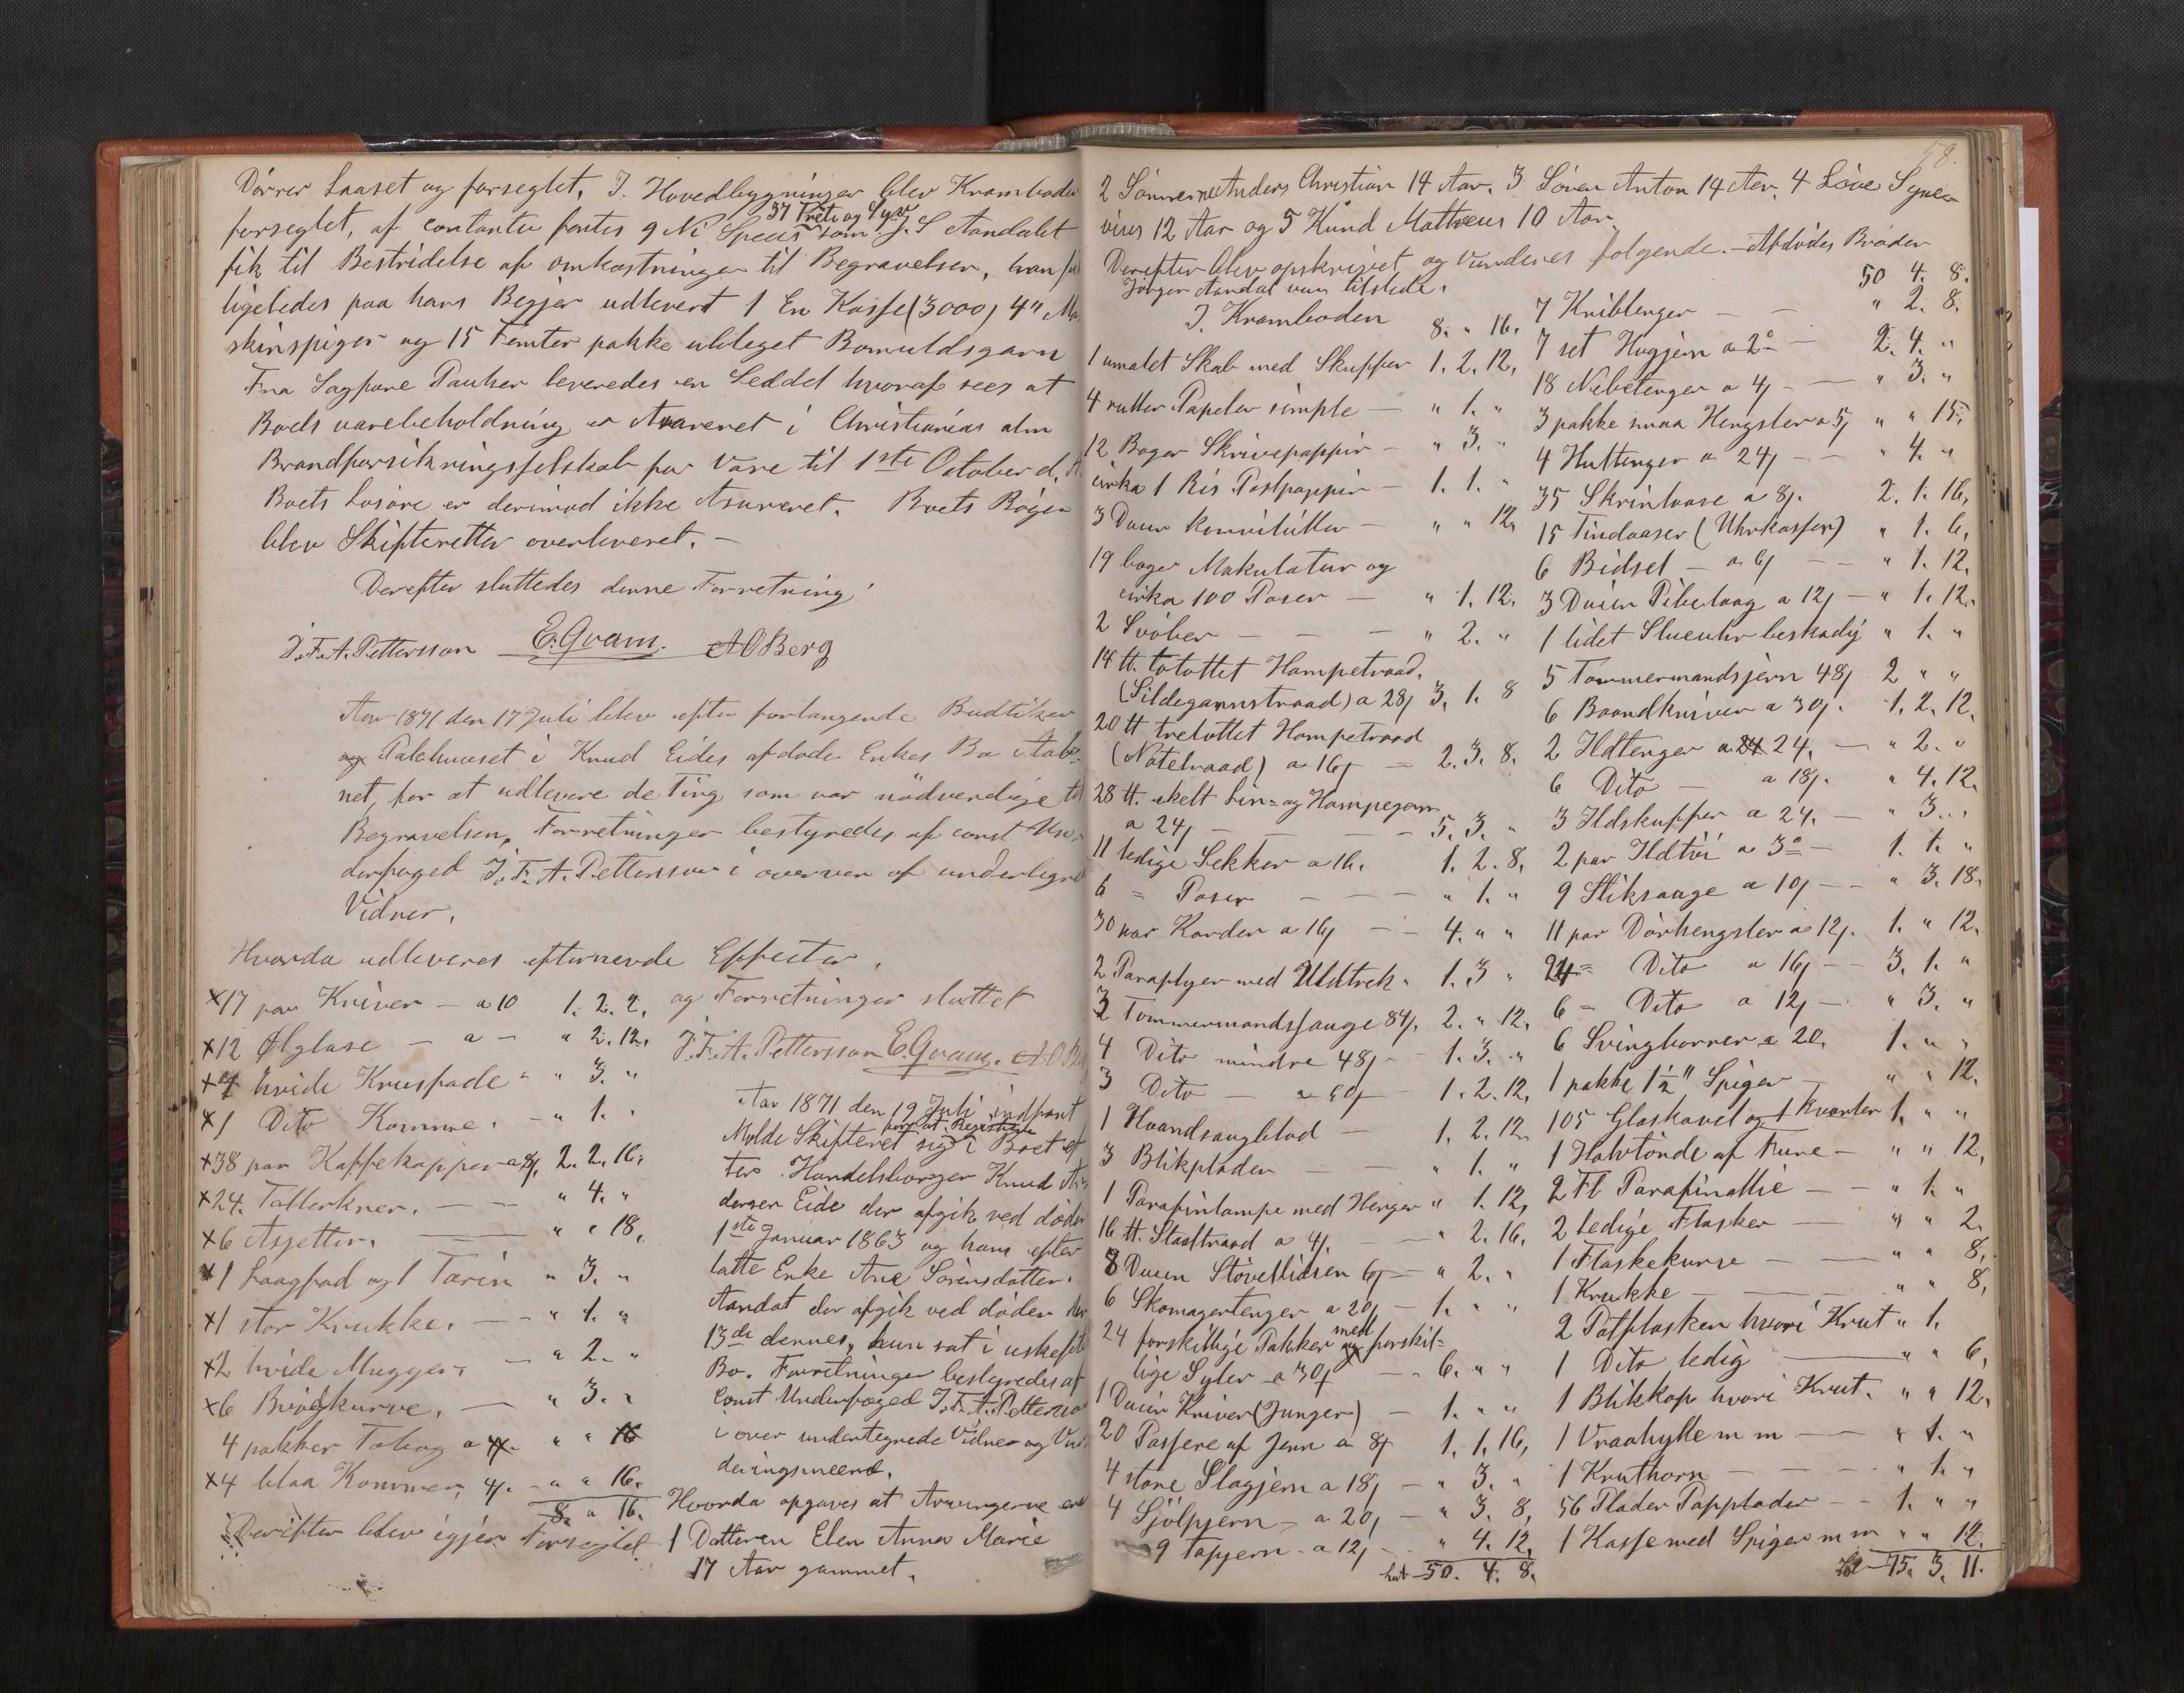 Dörrer Laaset og forseglet, I. Hovedbygningen blev Kramboden
forseglet, af contanter fantes 9 Ni Specis som J. S Aandalet
37 Treti og Syv
fik til Bestridelse af omkostninger til Begravelsen, han fik
ligeledes paa hans Begjer udlevert 1 En Kasse (3000) 4" Ma
skinspiger og 15 Femten pakke ubleget Bomuldsgarn
Fra Sagföre Pauher leveredes en Seddel hvoraf sees at
Boets varebeholdning er Asareret i Christianias alm
Brandforsikringsselskab for Vare til 1ste October d. A
Boets Losöre er derimod ikke Asureret. Boets Böger
blev Skifteretten overleveret. –
Derefter sluttedes denne Forretning.
J. F. A. Pettersson E. Qvam. A O Berg
Aar 1871 den 17 Juli blev efter forlangende Budtiken
og Pakhuuset i Knud Eides afdöde Enkes Bo Aab-
net, for at udlevere de Ting som var nödvendige til
Begravelsen, Forretningen bestyredes af const Un-
derfoged J. F. A. Pettersson i overver af undertegnede
Vidner.
Hvorda udleveres efternevnte Effecter.
×17 par Kniver – a 10 1. 2. 2.
×12 Ølglase – a – " 2. 12.
×4 hvide Krusfade " " 3. "
×1 Dito Komme. – " 1. "
×38 par Kaffekopper a 8/. 2. 2. 16.
×24. Tallerkner. – – " 4. "
×6 Asjetter. – " " 18.
×1 Laagfad og 1 Tarin " 3. "
×1 stor Krukke. – – " 1. "
×2 hvide Mugger. – " 2. "
×6 Brödkurve. – " 3. "
4 pakker Tobag a 4/. " " 16
×4 blaa Kommer, 4/. – " " 16.
8. " 16.
Derefter blev igjen Forseglet
og Forretningen sluttet
J. F. A. Pettersson E. Qvam. A O B
Aar 1871 den 19 Juli indfant
Molde Skifteret sig i Boet ef
ter Handelsborger Knud An
dersen Eide der afgik ved döden
1ste Januar 1863 og hans efter
latte Enke Ane Sörensdatter
Aandal der afgik ved döden den
13de dennes, hun sat i uskiftet
Bo. Forretningen bestyredes af
Const Underfoged J. F. A. Pettersson
i over undertegnede Vidner og Vur
deringsmeend.
Hvorda opgaves at Arvingerne ere
1 Datteren Elen Anna Marie
17 Aar gammel.
58.
2 Sönnerne Anders Christian 14 Aar. 3 Sören Anton 14 Aar, 4 Love Syver
vius 12 Aar og 5 Knud Matheus 10 Aar.
Derefter blev opskrivet og Vurderes folgende. – Afdödes Broder
Jörgen Aandal var tilstede.
I. Kramboden 8. " 16.
1 umalet Skab med Skuffer 1. 2. 12.
4 ruller Papeter simple – " 1. "
12 Bager Skrivepappir – " 3. "
cirka 1 Ris Postpappir – 1. 1. "
3 Dusin – " " 12.
19 bager Makulatur og
cirka 100 Poser – " 1. 12.
2 Svöber – – – " 2. "
14 tt. totottet Hampetraad,
(Sildegarnstraad) a 28/ 3. 1. 8
20 tt tretottet Hampetraad
(Notetraad) a 16/ – 2. 3. 8.
28 tt. ekelt Lin= og Hampegarn
a 24/ – – – 5. 3. "
11 ledige Sekker a 16. 1. 2. 8.
6 = Poser – – – " 1. "
30 par Karder a 16/ – – 4. " "
2 Paraplyer med Uldtrek " 1. 3 "
3 Tommermandssauge 84/. 2. " 12.
4 Dito mindre 48/ – 1. 3. "
3 Dito – a 60/ – 1. 2. 12.
1 Haandsaugblad – 1. 2. 12.
3 Blikplader – – " 1. "
1 Parafinlampe med Henger " 1. 12.
16 tt. Staaltraad a 4/. – " 2. 16.
8 Dusin Stövellidsen 6/ – " 2. "
6 Skomagertenger a 20/ – 1. " "
24 forskillige Pakker med forskil=
lige Syler a 30/ – 6. " "
1 Dusin Kniver (Junger) – 1. " "
20 Passere af Jern a 8/ 1. 1. 16.
4 store Slagjern a 18/ – " 3. "
4 Sjölpjern – a 20/ – " 3. 8.
9 Tapjern – a 12/ " 4. 12.
Lat 50. 4. 8.
50 4. 8.
7 Knibtenger – – " 2. 8.
7 set Hugjern a 2° – 2. 4. "
18 Nebetenger a 4/ – – " 3. "
3 pakke smaa Hengsler a 5/ " " 15.
4 Hultenger a 24/ – – " 4. "
35 Skrinlaase a 8/. 2. 1. 16.
15 Tindaaser (Uhrkasser) " 1. 6.
6 Bidsel – a 6/ – – " 1. 12.
3 Dusin Pibelaag a 12/ – " 1. 12.
1 lidet Stueuhr beskadig " 1. "
5 Tommermandsjern 48/ 2 " "
6 Baandkniver a 30/. 1. 2. 12.
2 Ildtenger a 24. – " 2. "
6 Dito – a 18/. " 4. 12.
3 Ildskuffer a 24. – " 3. "
2 par Ildtöi a 3° – 1. 1. "
9 Stiksauge a 10/ – – " 3. 18.
11 par Dörhengsler a 12/. 1. " 12.
24 = Dito a 16/ – 3. 1. "
6 = Dito a 12/ – " 3. "
6 Svingborrer a 20. 1. " "
1 pakke 1½" Spiger – " " 12.
105 Glaskavel og 1 Kvarter 1. " "
1 Halvtönde af Furu – " " 12.
2 Fl Parafinallie – – " 1. "
2 ledige Flasker – – " " 2.
1 Flaskekurve – – " " 8.
1 Krukke – – " " 8.
2 Potflasken hvori Krut " 1.
1 Dito ledig – " " 6.
1 Blikkop hvori Krut. " " 12.
1 Vraahylle m m – – " 1. "
1 Kruthorn – – – " 1. "
56 Plader Papplader – – 1. " "
1 Kasse med Spiger m m " " 12.
Lat 75. 3. 11.